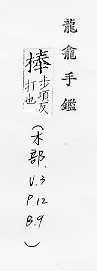 龍龕手鑑
棒
步項反
打也
(木部、
V.3
P.12
B.9
)